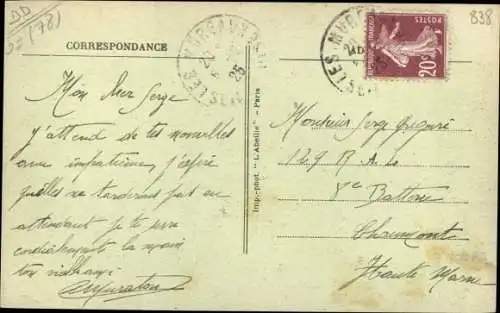 DD
78)
838
CORRESPONDANCE
MUREAUX
20
25
Sₑ ET
POSTES
20c
Mon cher Serge
J'attend de tes nouvelles
avec impatience, j'espère
qu'elles ne tarderont pas en
attendant je te serre
cordialement la main
ton vieil
Imp.-phot. "L'Abeille" - Paris
Monsieur Serge Grégoire
129 R. A. L
8e Batterie
Chaumont
Haute Marne